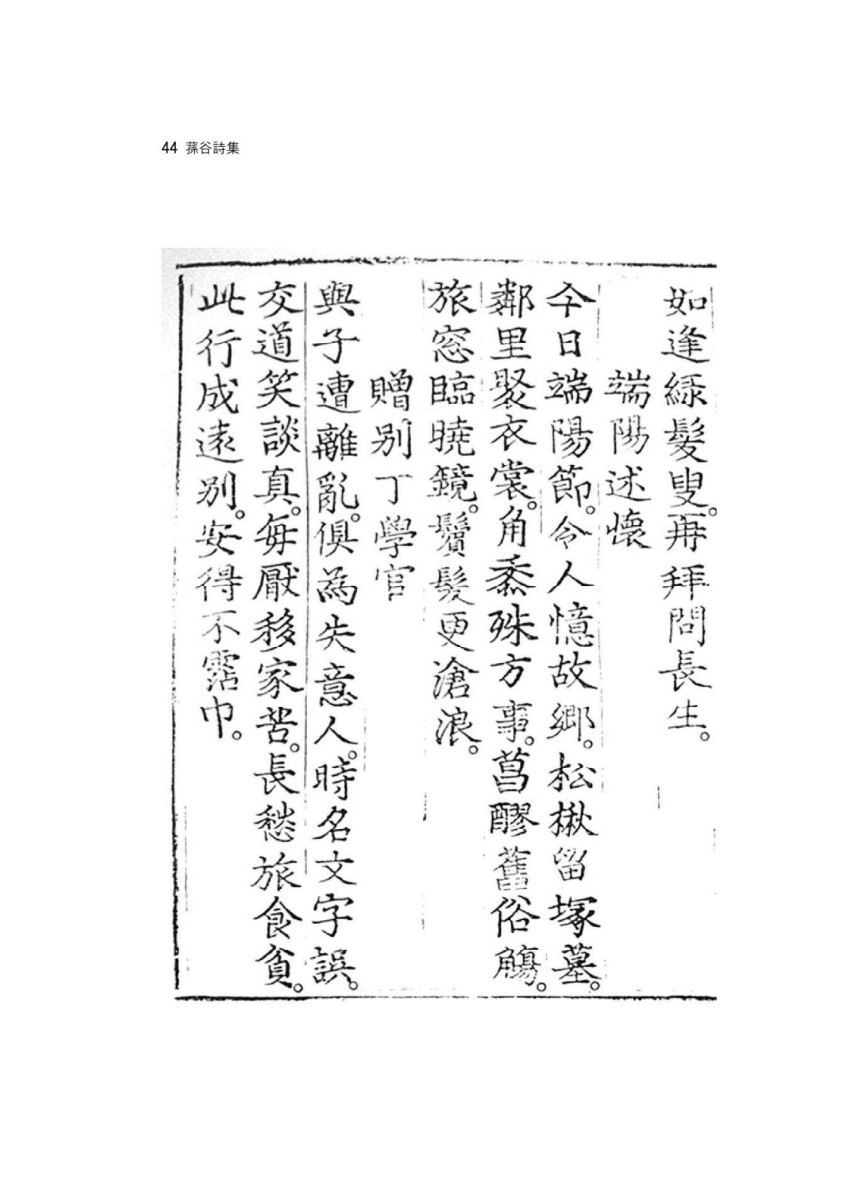 44 蓀谷詩集
如逢綠髮叟。再拜問長生。
端陽述懷
今日端陽節。令人憶故鄉。松楸留塚墓。
鄰里聚衣裳。角黍殊方事。菖醪舊俗觴。
旅窓臨曉鏡。鬢髮更滄浪。
贈別丁學官
與子遭離亂。俱為失意人。時名文字誤。
交道笑談真。每厭移家苦。長愁旅食貧。
此行成遠別。安得不霑巾。